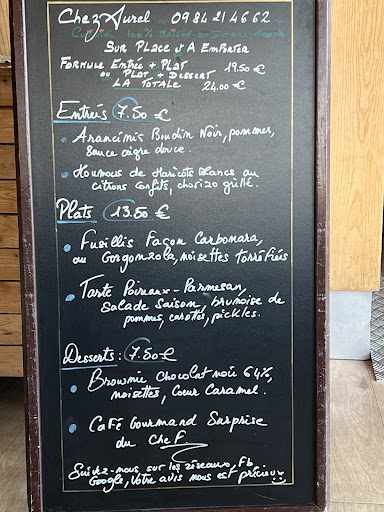 Chez Aurel 0984214662
Cuisine 100% Maison
Sur Place / A Emporter
Formule Entrée + Plat
ou Plat + Dessert 19.50 €
LA TOTALE 24.00 €
Entrées 7.50 €
Arancinis Boudin Noir, pommes,
sauce aigre douce.
Houmous de Haricots Blancs au
citrons confits, chorizo grillé.
Plats 13.50 €
Fusillis Façon Carbonara,
au Gorgonzola, noisettes torréfiées
Tarte Poireaux-Parmesan,
salade saison, brunoise de
pommes, carottes, pickles.
Desserts : 7.50 €
Brownie chocolat noir 64%,
noisettes, Coeur Caramel.
Café Gourmand Surprise
du Chef.
Suivez-nous sur les réseaux, Fb
Google, Votre avis nous est précieux